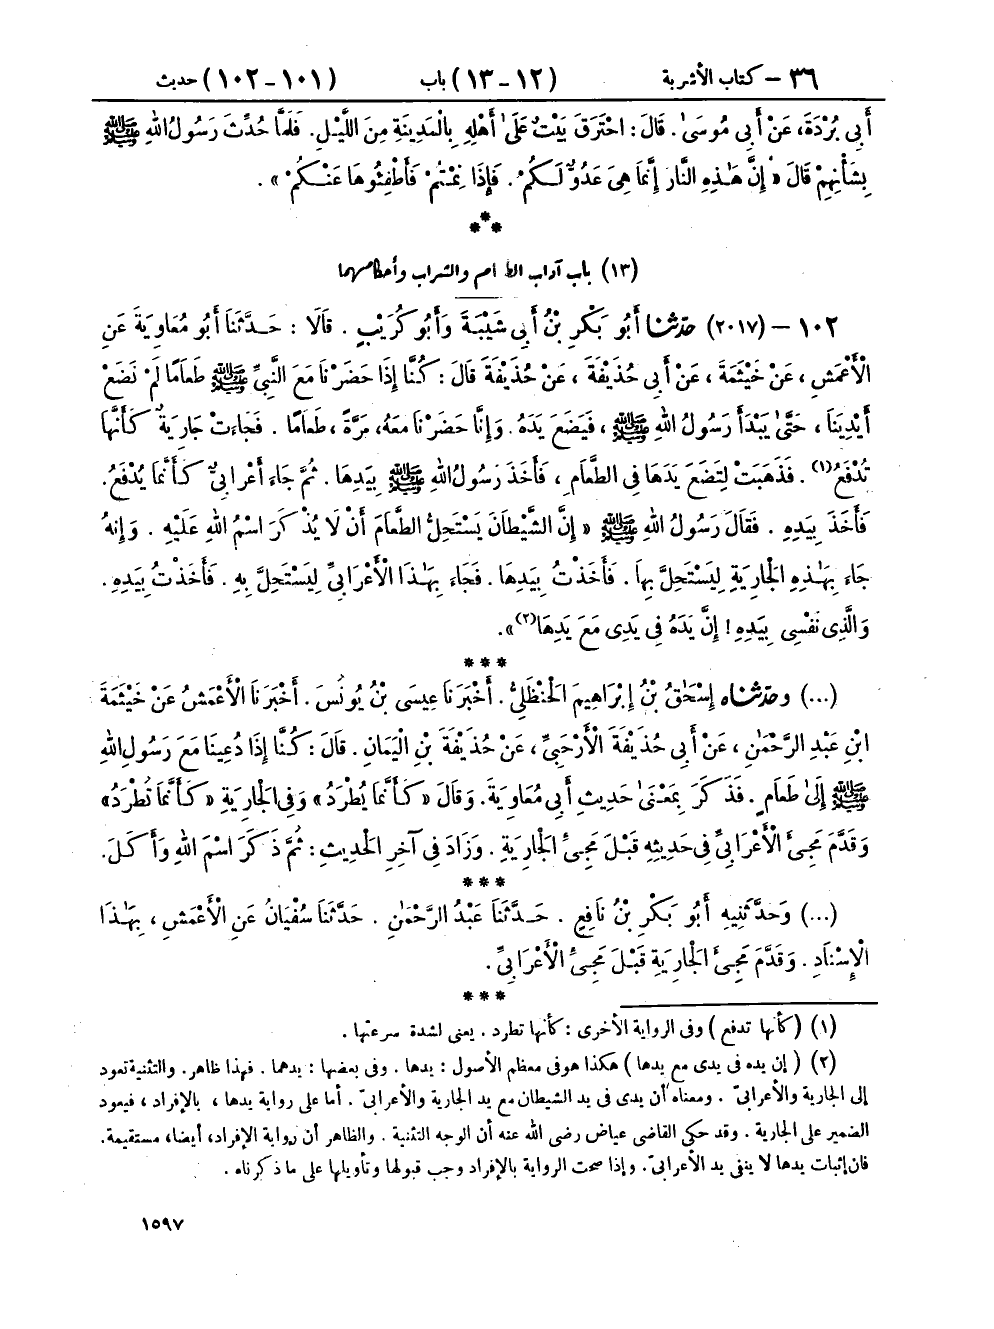 ٣٦ – كتاب الأشربة (١٢ – ١٣) باب (١٠١ – ١٠٢) حديث
أَبِي بُرْدَةَ، عَنْ أَبِي مُوسَىٰ. قَالَ: احْتَرَقَ بَيْتٌ عَلَىٰ أَهْلِهِ بِالْمَدِينَةِ مِنَ اللَّيْلِ. فَلَمَّا حُدِّثَ رَسُولُ اللهِ ﷺ
بِشَأْنِهِمْ قَالَ «إِنَّ هَٰذِهِ النَّارَ إِنَّمَا هِيَ عَدُوٌّ لَكُمْ. فَإِذَا نِمْتُمْ فَأَطْفِئُوهَا عَنْكُمْ».
***
(١٣) باب آداب الطعام والشراب وأحكامهما
١٠٢ – (٢٠١٧) حدّثنا أَبُو بَكْرِ بْنُ أَبِي شَيْبَةَ وَأَبُو كُرَيْبٍ. قَالَا: حَدَّثَنَا أَبُو مُعَاوِيَةَ عَنِ
الْأَعْمَشِ، عَنْ خَيْثَمَةَ، عَنْ أَبِي حُذَيْفَةَ، عَنْ حُذَيْفَةَ قَالَ: كُنَّا إِذَا حَضَرْنَا مَعَ النَّبِيِّ ﷺ طَعَامًا لَمْ نَضَعْ
أَيْدِيَنَا، حَتَّىٰ يَبْدَأَ رَسُولُ اللهِ ﷺ، فَيَضَعَ يَدَهُ. وَإِنَّا حَضَرْنَا مَعَهُ، مَرَّةً، طَعَامًا. فَجَاءَتْ جَارِيَةٌ كَأَنَّهَا
تُدْفَعُ(١). فَذَهَبَتْ لِتَضَعَ يَدَهَا فِي الطَّعَامِ، فَأَخَذَ رَسُولُ اللهِ ﷺ بِيَدِهَا. ثُمَّ جَاءَ أَعْرَابِيٌّ كَأَنَّمَا يُدْفَعُ.
فَأَخَذَ بِيَدِهِ. فَقَالَ رَسُولُ اللهِ ﷺ «إِنَّ الشَّيْطَانَ يَسْتَحِلُّ الطَّعَامَ أَنْ لَا يُذْكَرَ اسْمُ اللهِ عَلَيْهِ. وَإِنَّهُ
جَاءَ بِهَٰذِهِ الْجَارِيَةِ لِيَسْتَحِلَّ بِهَا. فَأَخَذْتُ بِيَدِهَا. فَجَاءَ بِهَٰذَا الْأَعْرَابِيِّ لِيَسْتَحِلَّ بِهِ. فَأَخَذْتُ بِيَدِهِ.
وَالَّذِي نَفْسِي بِيَدِهِ! إِنَّ يَدَهُ فِي يَدِي مَعَ يَدِهَا(٢)».
***
(...) وحدّثناه إِسْحَٰقُ بْنُ إِبْرَاهِيمَ الْحَنْظَلِيُّ. أَخْبَرَنَا عِيسَى بْنُ يُونُسَ. أَخْبَرَنَا الْأَعْمَشُ عَنْ خَيْثَمَةَ
ابْنِ عَبْدِ الرَّحْمَٰنِ، عَنْ أَبِي حُذَيْفَةَ الْأَرْحَبِيِّ، عَنْ حُذَيْفَةَ بْنِ الْيَمَانِ. قَالَ: كُنَّا إِذَا دُعِينَا مَعَ رَسُولِ اللهِ
ﷺ إِلَىٰ طَعَامٍ. فَذَكَرَ بِمَعْنَىٰ حَدِيثِ أَبِي مُعَاوِيَةَ. وَقَالَ «كَأَنَّمَا يُطْرَدُ» وَفِي الْجَارِيَةِ «كَأَنَّمَا تُطْرَدُ»
وَقَدَّمَ مَجِيءَ الْأَعْرَابِيِّ فِي حَدِيثِهِ قَبْلَ مَجِيءِ الْجَارِيَةِ. وَزَادَ فِي آخِرِ الْحَدِيثِ: ثُمَّ ذَكَرَ اسْمَ اللهِ وَأَكَلَ.
***
(...) وَحَدَّثَنِيهِ أَبُو بَكْرِ بْنُ نَافِعٍ. حَدَّثَنَا عَبْدُ الرَّحْمَٰنِ. حَدَّثَنَا سُفْيَانُ عَنِ الْأَعْمَشِ، بِهَٰذَا
الْإِسْنَادِ. وَقَدَّمَ مَجِيءَ الْجَارِيَةِ قَبْلَ مَجِيءِ الْأَعْرَابِيِّ.
***
(١) (كأنها تدفع) وفي الرواية الأخرى: كأنها تطرد. يعني لشدة سرعتها.
(٢) (إن يده في يدي مع يدها) هكذا هو في معظم الأصول: يدها. وفي بعضها: يدهما. فهذا ظاهر. والتثنية تعود
إلى الجارية والأعرابيّ. ومعناه أن يدي في يد الشيطان مع يد الجارية والأعرابيّ. أما على رواية يدها، بالإفراد، فيعود
الضمير على الجارية. وقد حكى القاضي عياض رضي الله عنه أن الوجه التثنية. والظاهر أن رواية الإفراد، أيضا، مستقيمة.
فان إثبات يدها لا ينفي يد الأعرابيّ. وإذا صحت الرواية بالإفراد وجب قبولها وتأويلها على ما ذكرناه.
١٥٩٧